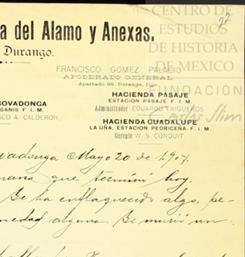 CENTRO DE
ESTUDIOS
DE HISTORIA
DE MEXICO
FUNDACIÓN
Carlos Slim
a del Alamo y Anexas.
Durango.
FRANCISCO GOMEZ PALACIO
APODERADO GENERAL
Apartado 88. Durango,
HACIENDA PASAJE
ESTACION PASAJE F. I. M.
Administrador EDUARDO TRIGUEROS
COVADONGA
F. I. M.
SCO A. CALDERON,
HACIENDA GUADALUPE
LA UÑA, ESTACION PEDRICEÑA F. I. M.
Gerente W. S. CONDUIT
vadonga Mayo 20 de 1907.
mana que terminó hoy.
Se ha enflaquecido algo, pe
medad alguna. Se murió un